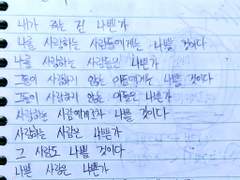 내가 죽는 건 나쁜가
나를 사랑하는 사람들에게는 나쁠 것이다
나를 사랑하는 사람들은 나쁜가
그들이 사랑하지 않는 이들에게는 나쁠 것이다
그들이 사랑하지 않는 이들은 나쁜가
사랑하는 사람에게조차 나쁠 것이다
사랑하는 사람은 나쁜가
그 사람도 나쁠 것이다
나쁜 사람은 나쁜가